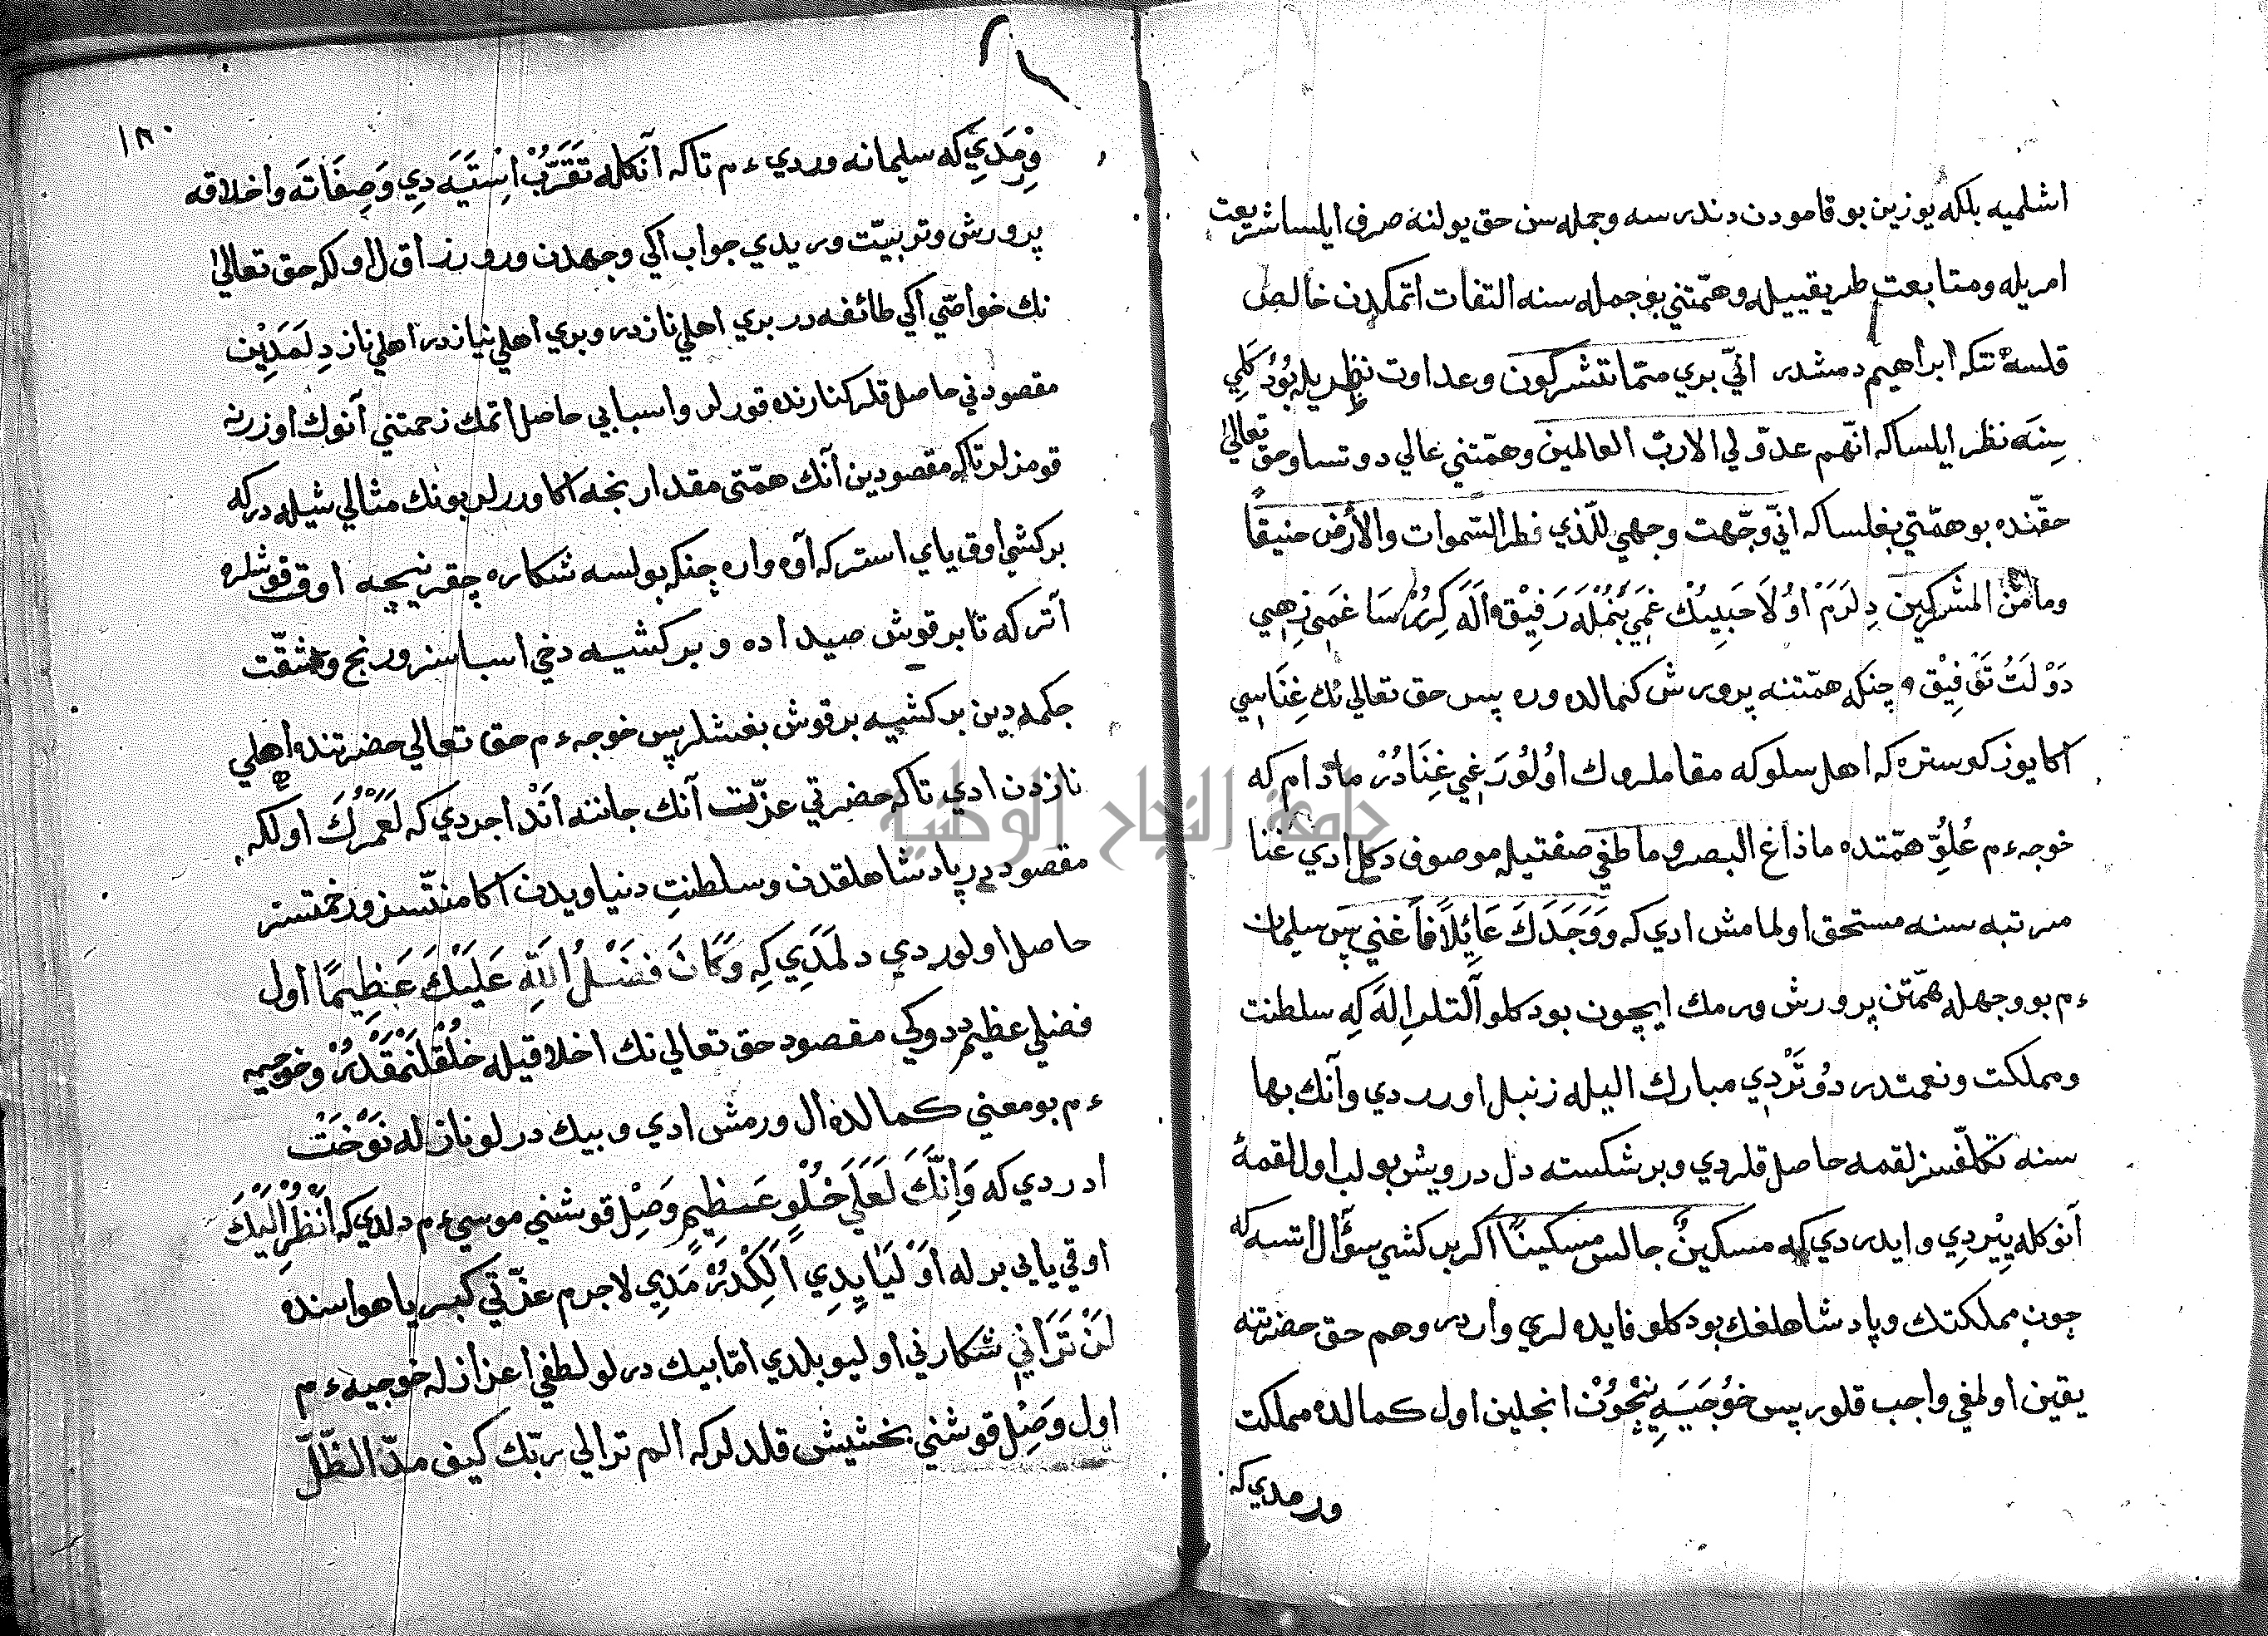 اشلميه بلكه يوزين بو قامودن دندرسه و جمله سن حق يولنه صرف ايلسا شريعت
امريله و متابعت طريقييله و همّتني بو جمله سنه التفات اتمكدن خالص
قلسه نتكه ابراهيم دمشدر انّي بري ممّا تشركون و عداوت نظريله بو دكلي
سنه نظر ايلسا كه انّهم عدوّ لي الا ربّ العالمين و همّتني عالي دوتسا و حق تعالى
حقّنده بو همّتي بغلسا كه انّي وجّهت وجهي للّذي فطر السّموات والأرض حنيفًا
وما من المشركين دِلرَم اوُلاَ حَبِيبُك غمي بنمله رَفِيق
دَوْلَتُ تَوْفِيْق و چنكه همّتنه پرورش كمالده وره پس حق تعالي نك غِنَاسِي
اكا يوز كوستره كه اهل سلوكه مقاملروك اوُلوُرَغِي غِنَادُرْ مادام كه
خوجه ءم عُلُوِّ همّتده ما ذاغ البصر و ما طغي صفتيله موصوف دكل ادي غنا
مرتبه سنه مستحق اولمامش ادي كه وَوَجَدَكَ عَائِلاً فاَغني پس سليمان
ءم بو وجهله همّتن پرورش ورمك ايچون بو دكلو آلتلر اِلَه كِه سلطنت
و مملكت و نعمتدر دوُتَرْدِي مبارك اليله زنبل اورردي و آنك بها
سنه تكلّفسز لقمه حاصل قلردي و بر شكسته دل درويش بولب اول لقمهٔ
آنوكله يِيْردِي و ايدردي كه مسكينٌ جالس مسكينًا اكر بر كشي سؤال اتسه كه
چون مملكتك و پادشاهلغك بو دكلو فايده لري واردر و هم حق حضرتنه
يقين اولمغي واجب قلور پس خوُجَيَهِ نِچْوُنْ انجلين اول كمالده مملكت
ورمدي كه
١٨٠
وِرْمَدِي كه سليمانه وردي ءم تا كه آنكله تَقَرُّبْ اِسْتَيَه دِي وَصِفَاتَه و اخلاقه
پرورش و تربيّت وريدي جواب اكي وجهدن ورورز اوّل اولكه حق تعالى
نك خواصّي اكي طائفه در بري اهلي نازدر و بري اهلي نيازدر اهلي ناز دِلَمَدِيْن
مقصودني حاصل قلر كنارنده قورلر و اسبابي حاصل اتمك زحمتني آنوك اوزرنه
قومزلر تا كه مقصودين آنك همّتي مقدارنجه اكا وررلر بونك مثالي شيله دركه
بر كشي اوق ياي استر كه آوه واره چنكه بولسه شكاره چقر نيچه اوق قوشلره
آتر كه تا بر قوش صيد اده و بر كشييه دخي اسباسز و رنج و مشقّت
چكمدين بر كشييه بر قوش بغشلر پس خوجه ءم حق تعالي حضرتنده اهلي
نازدن ادي تا كه حضرتي عزّت آنك جاننه اَنْد اجردي كه لَعَمْرُكَ اولكه
مقصوددر پادشاهلقدن و سلطنتِ دنياويدن اكا منّتسز و زحمتسز
حاصل اولوردي دلمَدِي كِه وَكَانَ فَضْلُ اللهِ عَلَيْكَ عَظِيمًا اول
فضلي عظيم دوكي مقصود حق تعالي نك اخلاقيله خُلُقلَنْمَقْدُرْ و خوجيه
ءم بو معني كمالده ال ورمش ادي و بيك درلو ناز له نَوَخَتْ
ادردي كه وَاِنَّكَ لَعَلَي خُلُقٍ عَظِيمٍ وَصِل قوشني موسي ءم دلدي كه اَنْظُرْ اِلَيْكَ
اوقي يايي برله اَوْلَيَايِدِي اَلِكْدُرْمَدِي لاجرم عزّتي كبريا هواسنده
لَنْ تَرَانِي شكارني اوليو بلدي امّا بيك درلو لطفي اعزاز له خوجيه ءم
اول وَصِل قوشني بخشيش قلدلر كه الم تر الي ربّك كيف مدّ الظّلّ